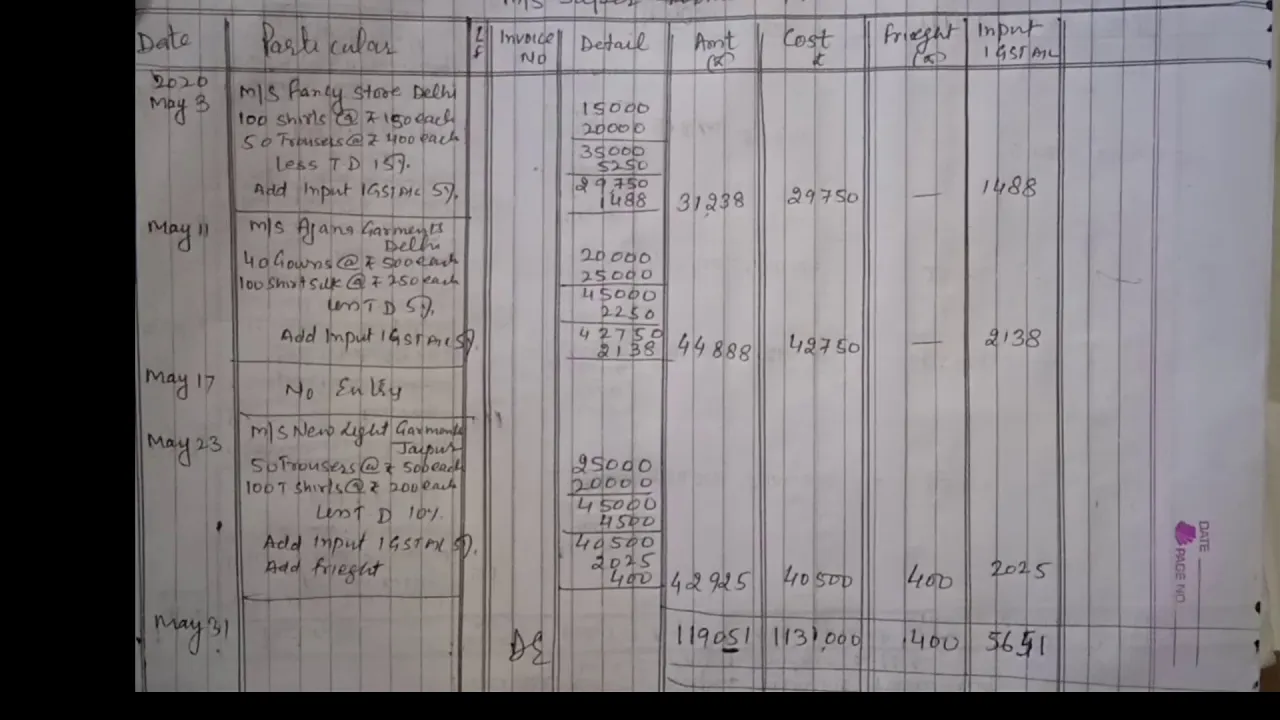 M/S Super
Date Particular L f Invoice No Detail Amt (₹) Cost ₹ Frieght (₹) Input IGST A/c
2020
May 3 M/S Fancy Store Delhi
100 Shirts @ ₹ 150 each 15000
50 Trousers @ ₹ 400 each 20000
35000
Less T D 15%. 5250
29750
Add Input IGST A/c 5%. 1488 31,238 29750 — 1488
May 11 M/S Ajanta Garments
Delhi
40 Gowns @ ₹ 500 each 20000
100 Shirt Silk @ ₹ 250 each 25000
45000
Less T D 5%. 2250
42750
Add Input IGST A/c 5%. 2138 44888 42750 — 2138
May 17 No Entry
May 23 M/S New Light Garments
Jaipur
50 Trousers @ ₹ 500 each 25000
100 T Shirts @ ₹ 200 each 20000
45000
Less T D 10%. 4500
40500
Add Input IGST A/c 5%. 2025
Add Frieght 400 42925 40500 400 2025
May 31 119051 113,000 400 5651
DATE
PAGE NO.